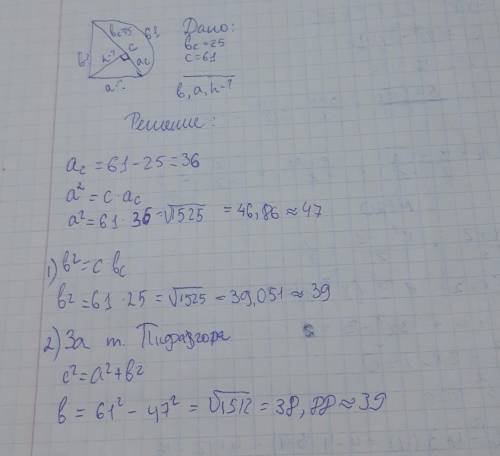 bc=25 61
c
b? h-? ac
a-?
Дано:
bc=25
c=61
b, a, h-?
Решение:
ac = 61-25=36
a² = c·ac
a² = 61·36 = √1525 = 46,86 ≈ 47
1) b² = c bc
b² = 61·25 = √1525 = 39,051 ≈ 39
2) За т. Пифагора
c² = a² + b²
b = 61² - 47² = √1512 = 38,88 ≈ 39